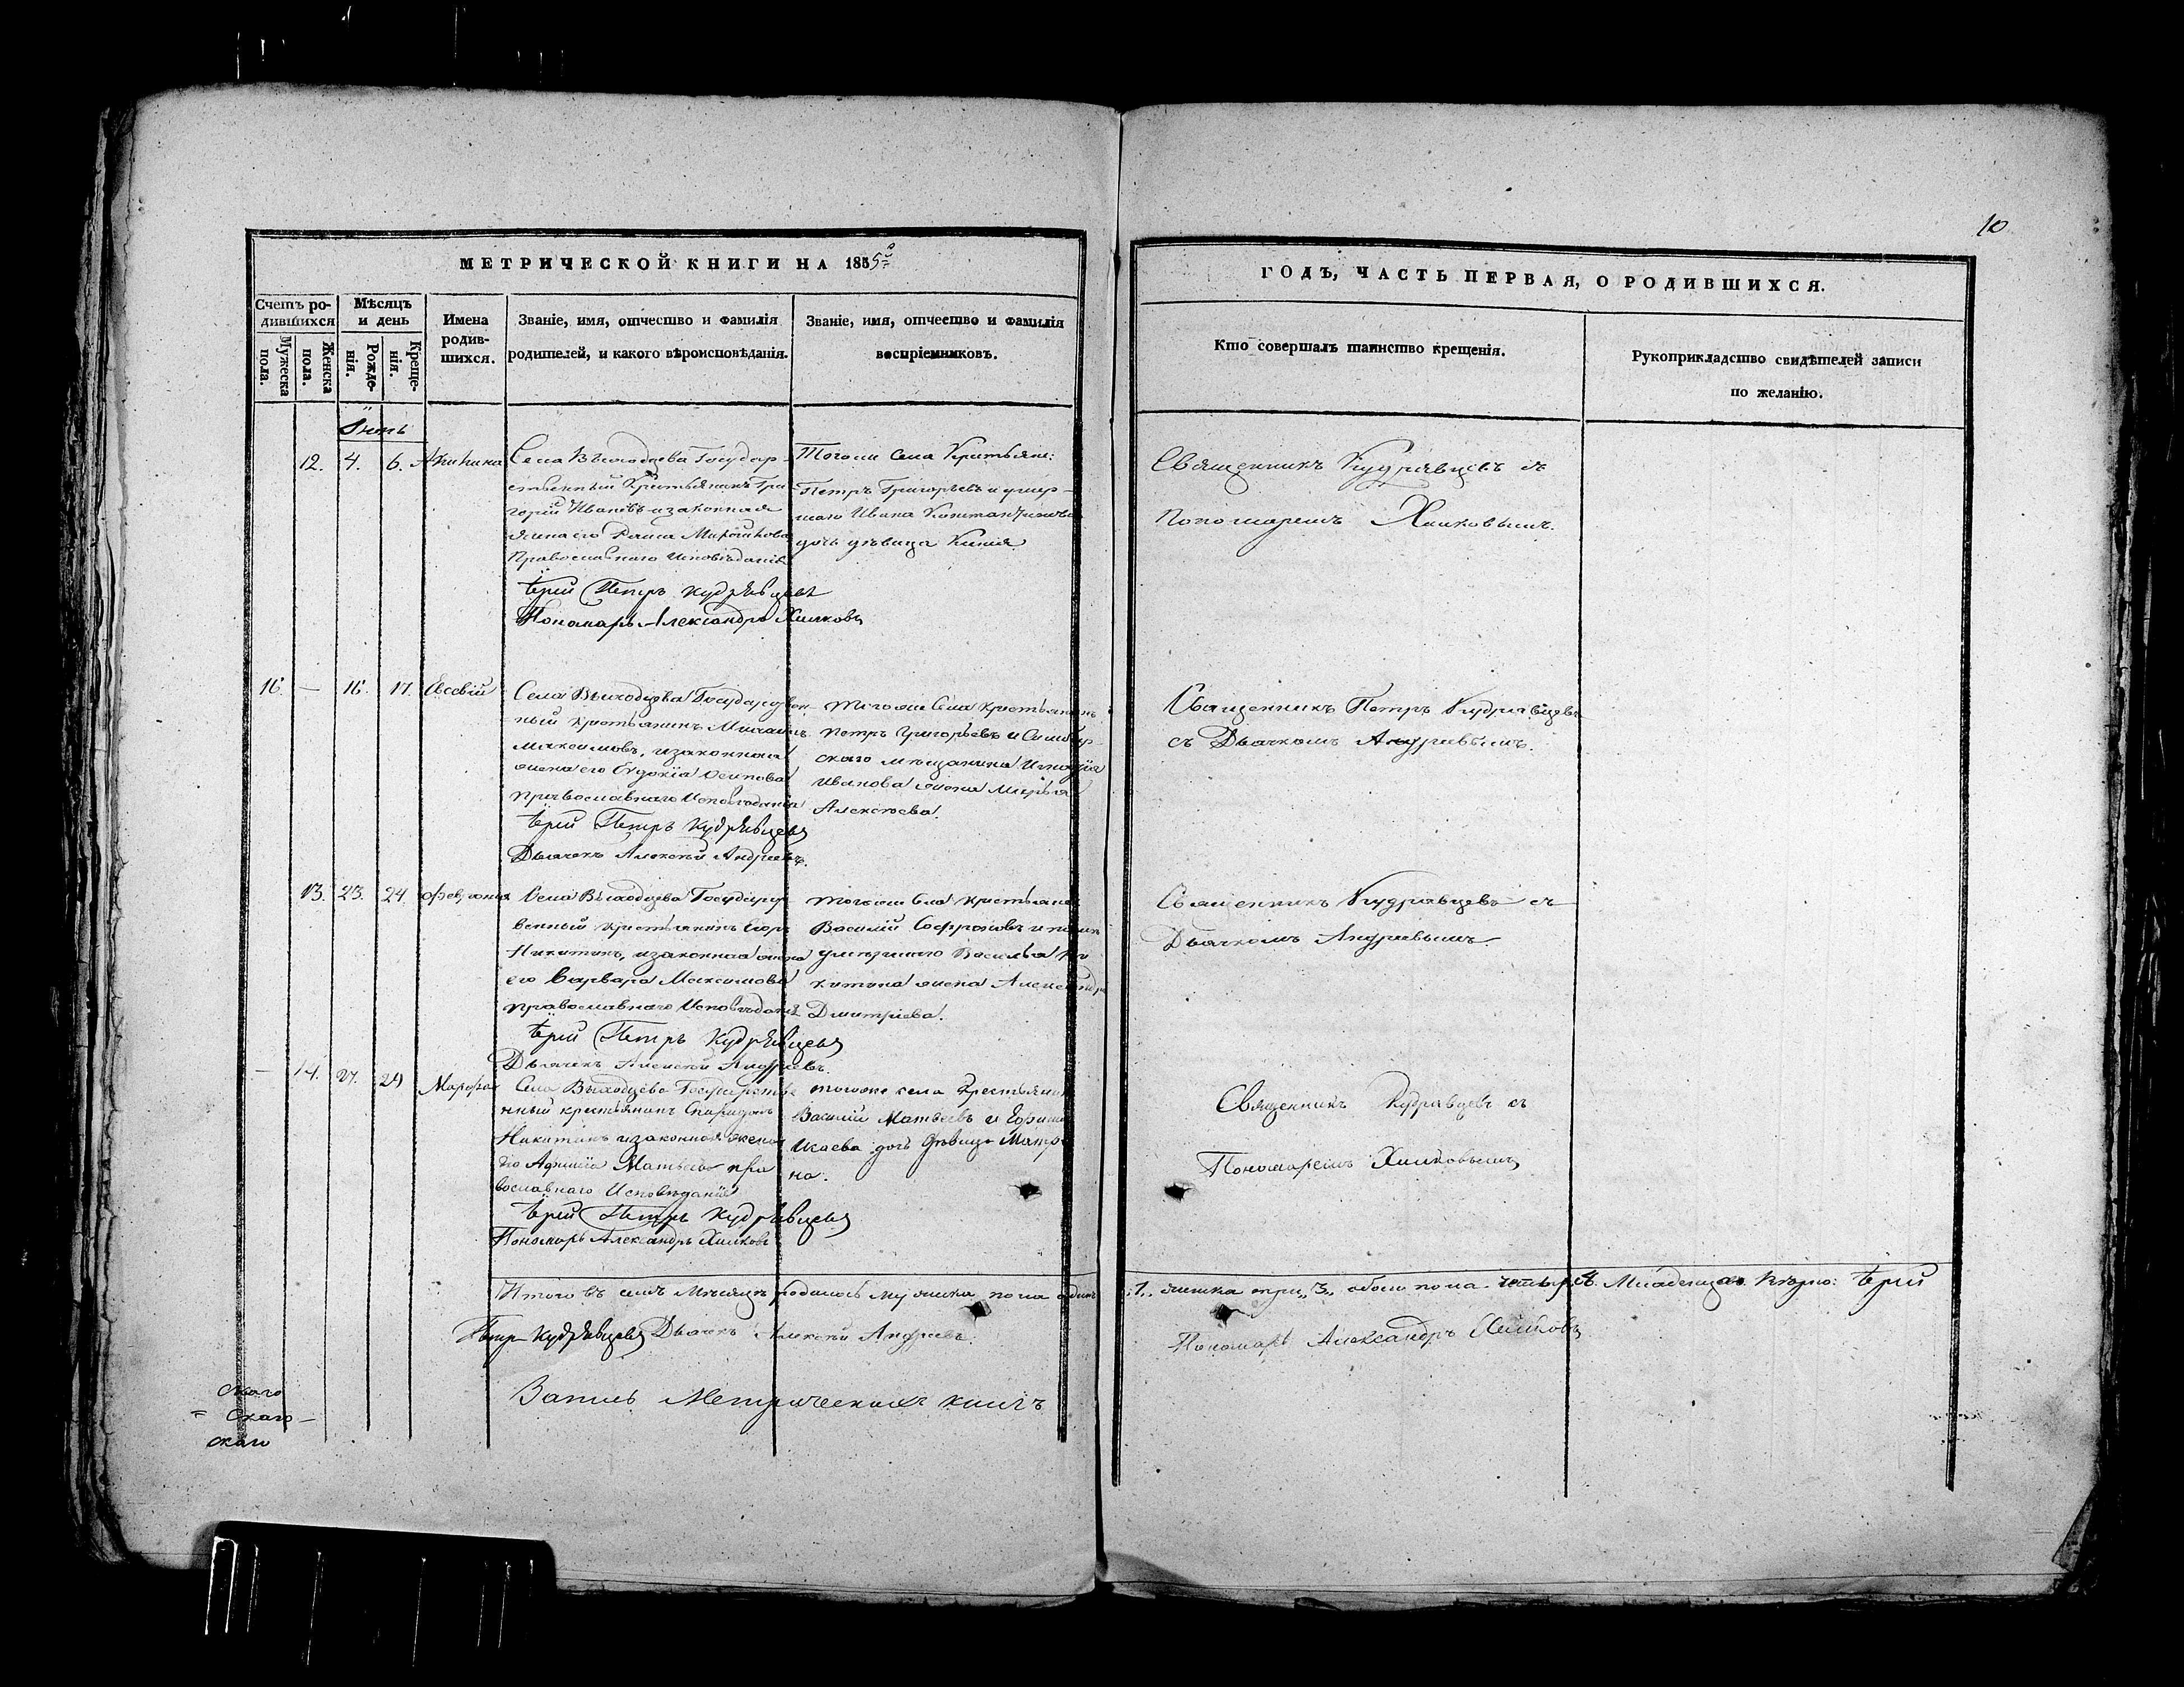 10
МЕТРИЧЕСКОЙ КНИГИ НА 1855й
ГОДЪ, ЧАСТЬ ПЕРВАЯ, О РОДИВШИХСЯ.
Счетъ ро-
дившихся
Мужеска пола.
Женска пола.
Мѣсяцъ
и день
Рожде-
нія.
Креще-
нія.
Имена
родив-
шихся.
Званіе, имя, отчество и фамилія
родителей, и какого вѣроисповѣданія.
Званіе, имя, отчество и фамилія
воспріемниковъ.
Кто совершалъ таинство крещенія.
Рукоприкладство свидѣтелей записи
по желанію.
12. 4. 6.
Села Выходцева Государ-
ственный Крестьянинъ Гри
горій Ивановъ изаконная
жена его
Православнаго Исповѣданія
Іерей Петръ Кудрявцевъ
Пономарь Александръ Хилковъ
Тогоже Села Крестьяне:
Петръ Григорьевъ и умер-
шаго Ивана Константинова
дочь дѣвица
Священникъ Кудрявцевъ съ
Пономаремъ Хилковымъ.
16. — 16. 17. Евсевій
Села Выходцева Государствен
ный Крестьянинъ Михаилъ
Максимовъ, изаконная
жена его Евдокія Осипова
Православнаго Исповѣданія
Іерей Петръ Кудрявцевъ
Дьячекъ Алексѣй Андреевъ.
Тогоже Села Крестьянинъ
Петръ Григорьевъ и Симбир-
скаго мѣщанина Игнатія
Иванова жена Марья
Алексѣева.
Священникъ Петръ Кудрявцевъ
съ Дьячкомъ Андреевымъ.
13. 23. 24. Февронія
Села Выходцева Государст
венный Крестьянинъ Егоръ
Никитинъ, изаконная жена
его Варвара Максимова
Православнаго Исповѣданія
Іерей Петръ Кудрявцевъ
Дьячекъ Алексѣй Андреевъ.
Тогоже Села Крестьяне
Василій Софроновъ и
умершаго Василья Ни
китина жена Александра
Дмитріева.
Священникъ Кудрявцевъ съ
Дьячкомъ Андреевымъ.
— 14. 27. 29 Марфа
Села Выходцева Государстве
нный крестьянинъ Спиридонъ
Никитинъ изаконная жена
его Матвѣева пра
вославнаго Исповѣданія
Іерей Петръ Кудрявцевъ
Пономарь Александръ Хилковъ
тогоже села Крестьянин
Василій Матвѣевъ и Ефима
Исаева дочь дѣвица Матре
на.
Священникъ Кудрявцевъ съ
Пономаремъ Хилковымъ
Итого въ семъ Мѣсяцѣ родилось мужеска пола одинъ
„1„ женска три „3„ обоего пола четыре 4. Младенца. Вѣрно: Іерей
Петръ Кудрявцевъ Дьячекъ Алексѣй Андреевъ.
Пономарь Александръ Хилковъ
скаго
= скаго —
скаго
Запись Метрическихъ книгъ